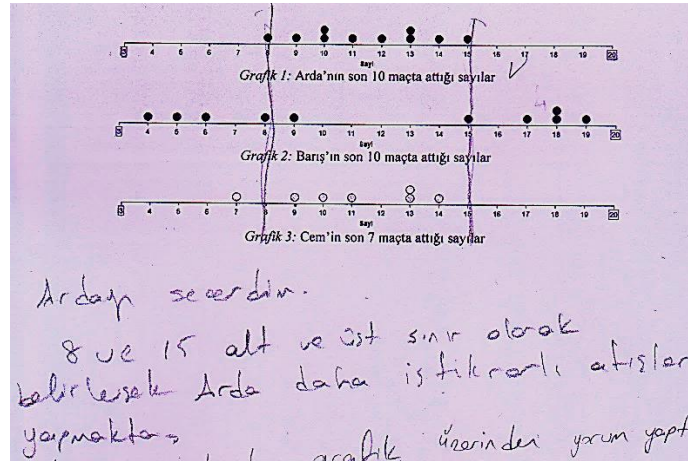 3 4 5 6 7 8 9 10 11 12 13 14 15 16 17 18 19 20
Sayi
Grafik 1: Arda'nın son 10 maçta attığı sayılar
3 4 5 6 7 8 9 10 11 12 13 14 15 16 17 18 19 20
Sayi
Grafik 2: Barış'ın son 10 maçta attığı sayılar
3 4 5 6 7 8 9 10 11 12 13 14 15 16 17 18 19 20
Sayi
Grafik 3: Cem'in son 7 maçta attığı sayılar
Ardayı seçerdim.
8 ve 15 alt ve üst sınır olarak
belirlersek Arda daha istikrarlı atışlar
yapmakta
grafik üzerinden yorum yapt